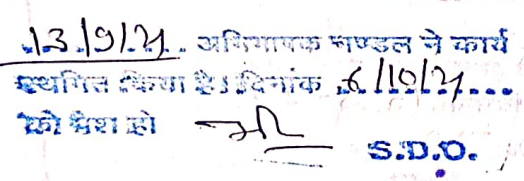 13/9/21. अभिभाषक मण्डल ने कार्य
स्थगित किया है। दिनांक 6/10/21...
को पेश हो
S.D.O.